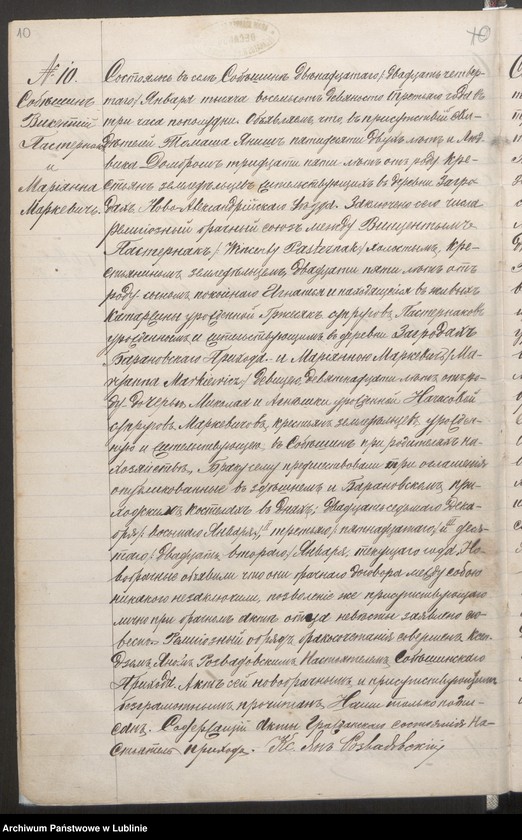 10
№ 10.
Собѣшинъ
Викентій
Пастернакъ
и
Маріанна
Маркевичъ.
Состоялось въ селѣ Собѣшинѣ двѣнадцатаго/двадцать четвер-
таго/Января тысяча восемьсотъ девяносто третьяго года въ
три часа пополудни. Объявляемъ, что, въ присутствіи свидѣ-
двухъ лѣтъ и
тридцати пяти лѣтъ отъ роду кре-
стьянъ земледѣльцевъ, жительствующихъ въ деревнѣ Загро-
дахъ, Ново-Александрійскаго Уѣзда. Заключенъ сего числа
религіозный брачный союзъ между Викентіемъ
Пастернакъ/Wincenty Pasternak/холостымъ, кре-
стьяниномъ земледѣльцемъ, двадцати пяти лѣтъ отъ
роду, сыномъ покойнаго Игнатія и находящейся въ живыхъ
Катарины урожденной супруговъ Пастернаковъ
урожденнымъ и жительствующимъ въ деревнѣ Загродахъ
Барановскаго Прихода и Маріанною Маркевичъ/Ma-
ryanna Markiewicz/дѣвицею, девятнадцати лѣтъ отъ ро-
ду, дочерью Николая и урожденной
супруговъ Маркевичовъ, крестьянъ земледѣльцевъ, урожден-
ною и жительствующею въ Собѣшинѣ при родителяхъ на
хозяйствѣ. Браку сему предшествовали три оглашенія
опубликованныя въ здѣшнемъ и Барановскомъ при-
ходскихъ костелахъ въ дняхъ: двадцать седьмаго Дека-
бря/восьмаго Января, третьяго/пятнадцатаго, и деся-
таго/двадцать втораго/Января, текущаго года. Но-
вобрачные объявили что они брачнаго договора между собою
никакого не заключили, позволеніе же присутствующаго
лично при брачномъ актѣ отца невѣсты заявлено сло-
весно. Религіозный обрядъ бракосочетанія совершенъ Ксен-
дземъ Яномъ Розвадовскимъ Настоятелемъ Собѣшинскаго
Прихода. Актъ сей новобрачнымъ и присутствующимъ
неграмотнымъ прочитанъ, Нами только подпи-
санъ. Содержащій Акты Гражданскаго Состоянія На-
стоятель прихода. Кс. Янъ Розвадовскій
Archiwum Państwowe w Lublinie